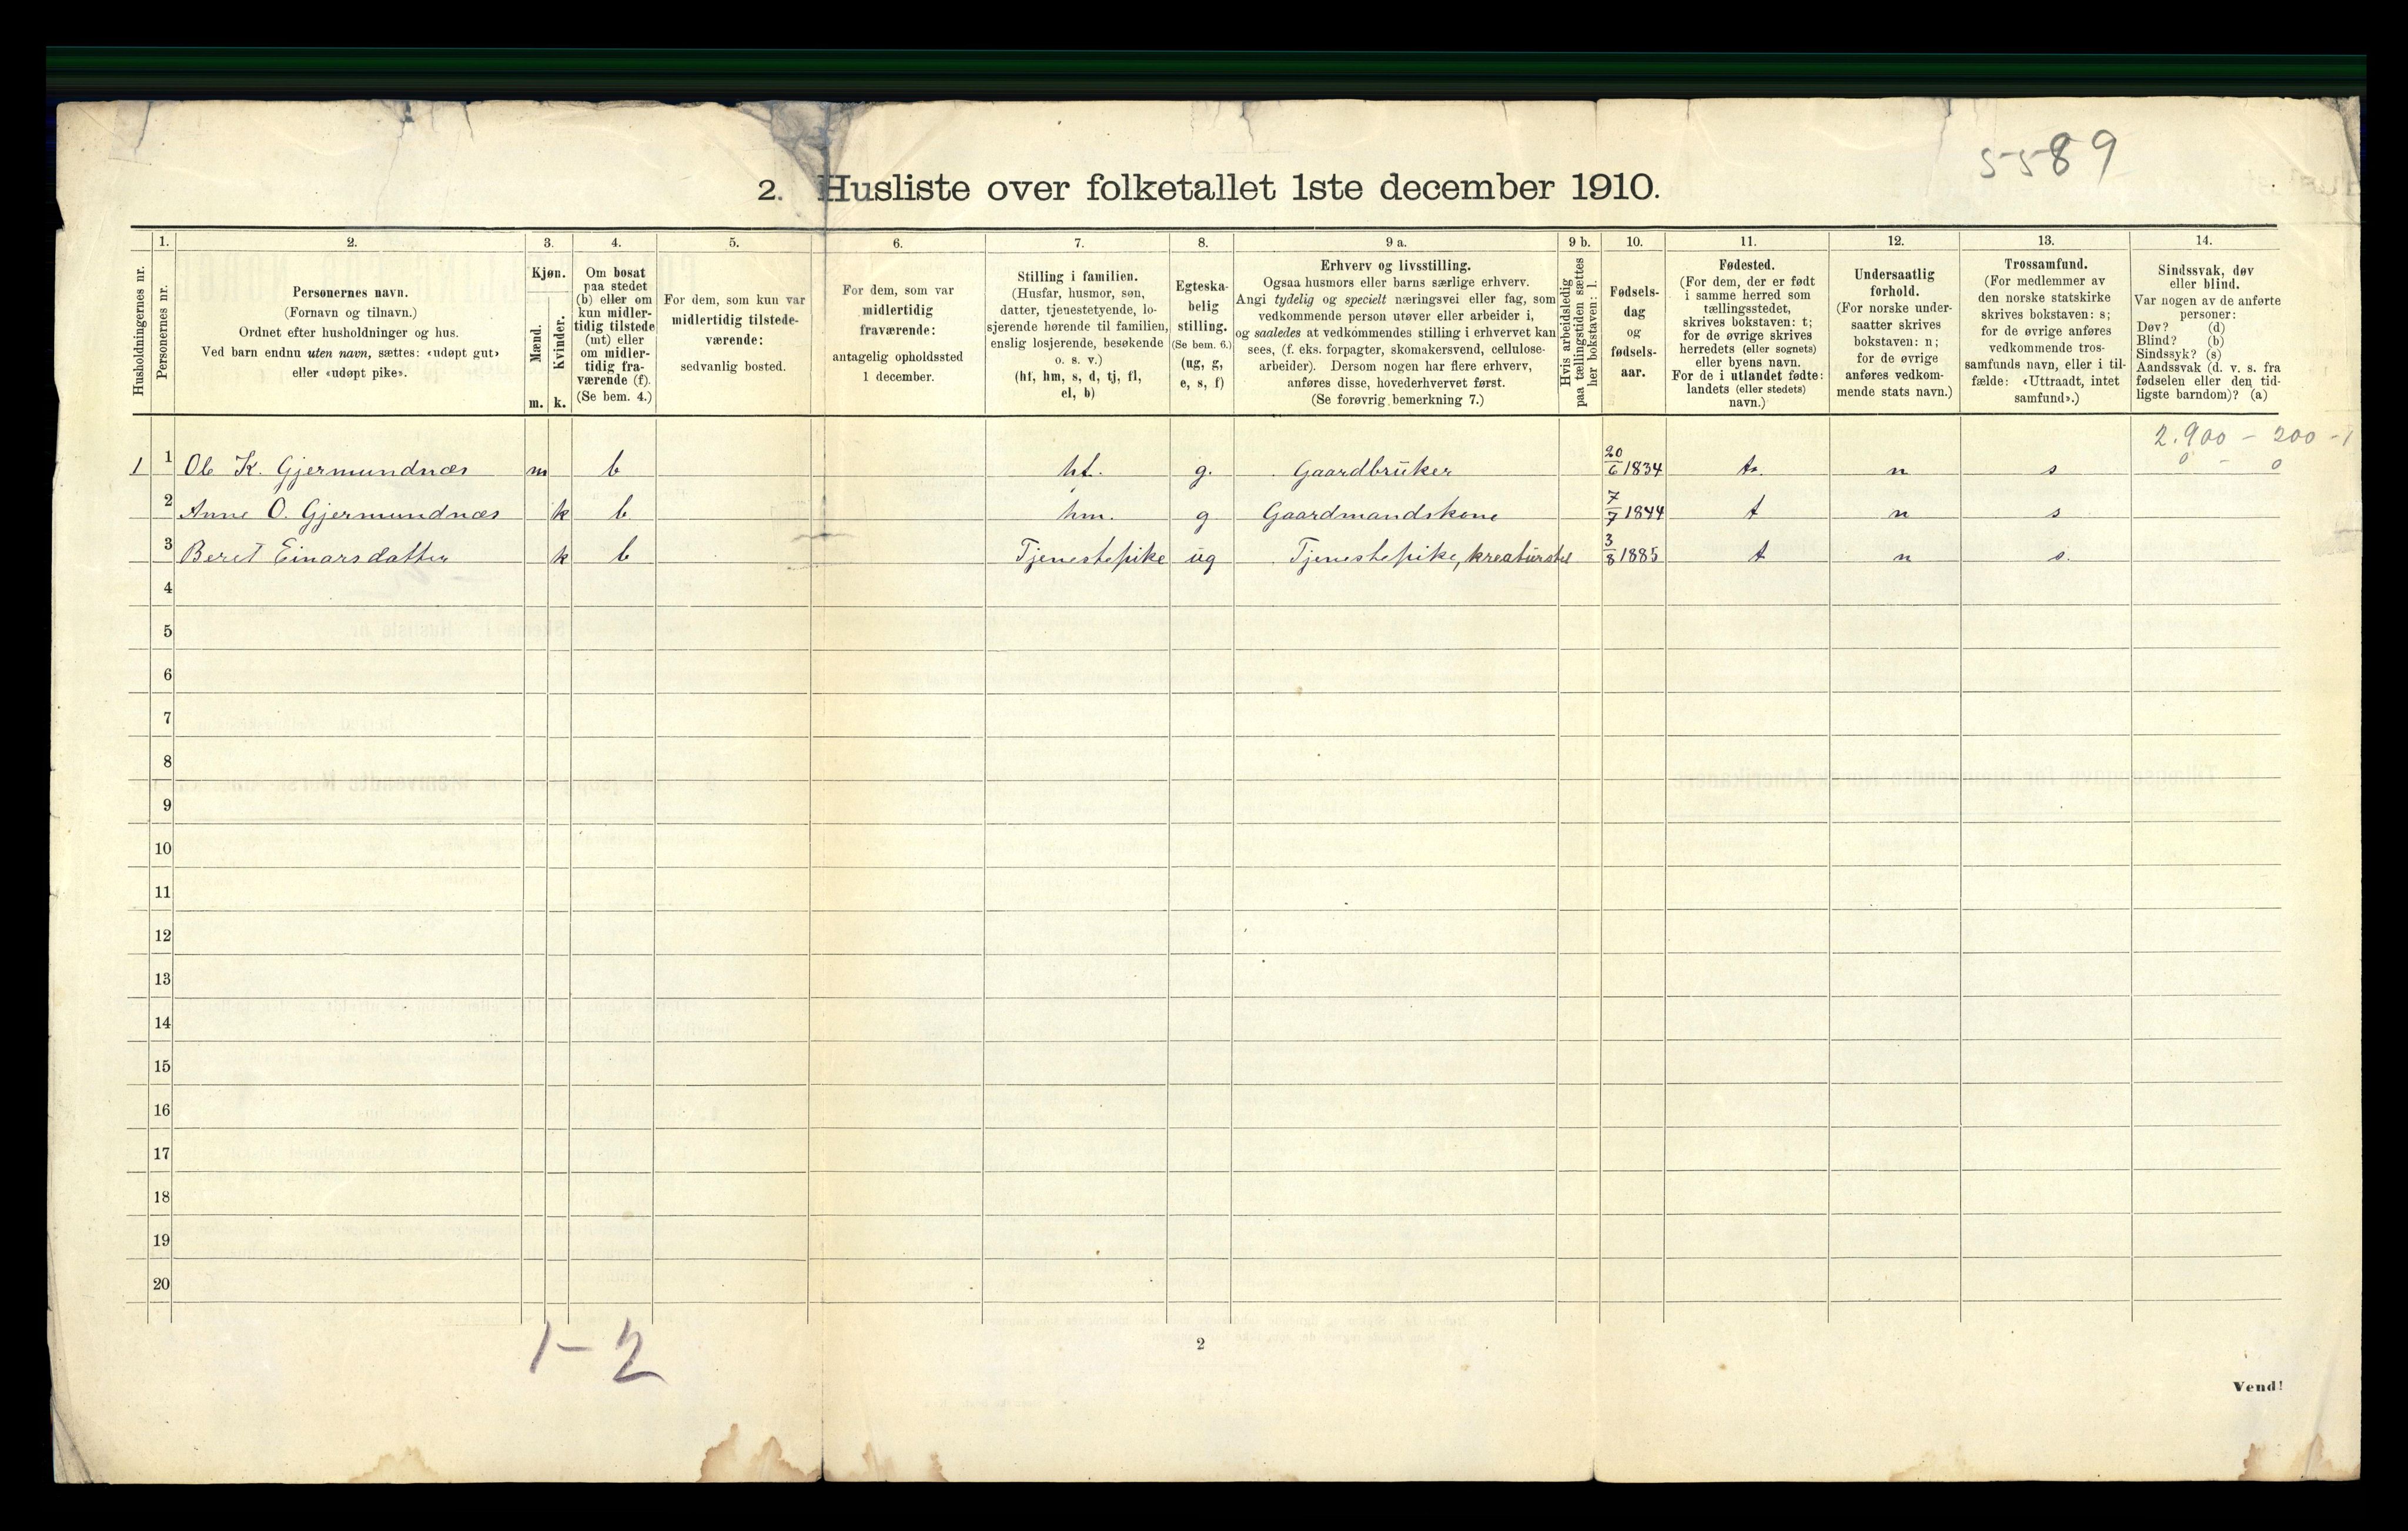 5589
2. Husliste over folketallet 1ste december 1910.
Husholdningernes nr.
1.
Personernes nr.
2.
Personernes navn.
(Fornavn og tilnavn.)
Ordnet efter husholdninger og hus.
Ved barn endnu uten navn, sættes: «udøpt gut»
eller «udøpt pike».
3.
Kjøn.
Mænd.
Kvinder.
m. k.
4.
Om bosat
paa stedet
(b) eller om
kun midler-
tidig tilstede
(mt) eller
om midler-
tidig fra-
værende (f).
(Se bem. 4.)
5.
For dem, som kun var
midlertidig tilstede-
værende:
sedvanlig bosted.
6.
For dem, som var
midlertidig
fraværende:
antagelig opholdssted
1 december.
7.
Stilling i familien.
(Husfar, husmor, søn,
datter, tjenestetyende, lo-
sjerende hørende til familien,
enslig losjerende, besøkende
o. s. v.)
(hf, hm, s, d, tj, fl,
el, b)
8.
Egteska-
belig
stilling.
(Se bem. 6.)
(ug, g,
e, s, f)
9 a.
Erhverv og livsstilling.
Ogsaa husmors eller barns særlige erhverv.
Angi tydelig og specielt næringsvei eller fag, som
vedkommende person utøver eller arbeider i,
og saaledes at vedkommendes stilling i erhvervet kan
sees, (f. eks. forpagter, skomakersvend, cellulose-
arbeider). Dersom nogen har flere erhverv,
anføres disse, hovederhvervet først.
(Se forøvrig bemerkning 7.)
9 b.
Hvis arbeidsledig
paa tællingstiden sættes
her bokstaven: l.
10.
Fødsels-
dag
og
fødsels-
aar.
11.
Fødested.
(For dem, der er født
i samme herred som
tællingsstedet,
skrives bokstaven: t;
for de øvrige skrives
herredets (eller sognets)
eller byens navn.
For de i utlandet fødte:
landets (eller stedets)
navn.)
12.
Undersaatlig
forhold.
(For norske under-
saatter skrives
bokstaven: n;
for de øvrige
anføres vedkom-
mende stats navn.)
13.
Trossamfund.
(For medlemmer av
den norske statskirke
skrives bokstaven: s;
for de øvrige anføres
vedkommende tros-
samfunds navn, eller i til-
fælde: «Uttraadt, intet
samfund».)
14.
Sindssvak, døv
eller blind.
Var nogen av de anførte
personer:
Døv? (d)
Blind? (b)
Sindssyk? (s)
Aandssvak (d. v. s. fra
fødselen eller den tid-
ligste barndom)? (a)
2.900 - 200 - 1
0 - 0
1 1 Ole K. Gjermundnæs m b hf. g. Gaardbruker 20/6 1834 t. n s
2 Anne O. Gjermundnæs k b hm. g Gaardmandskone 7/7 1844 t n s
3 Beret Einarsdatter k b Tjenestepike ug Tjenestepike, kreaturstel 3/8 1885 t n s.
4
5
6
7
8
9
10
11
12
13
14
15
16
17
18
19
20
1-2
2
Vend!